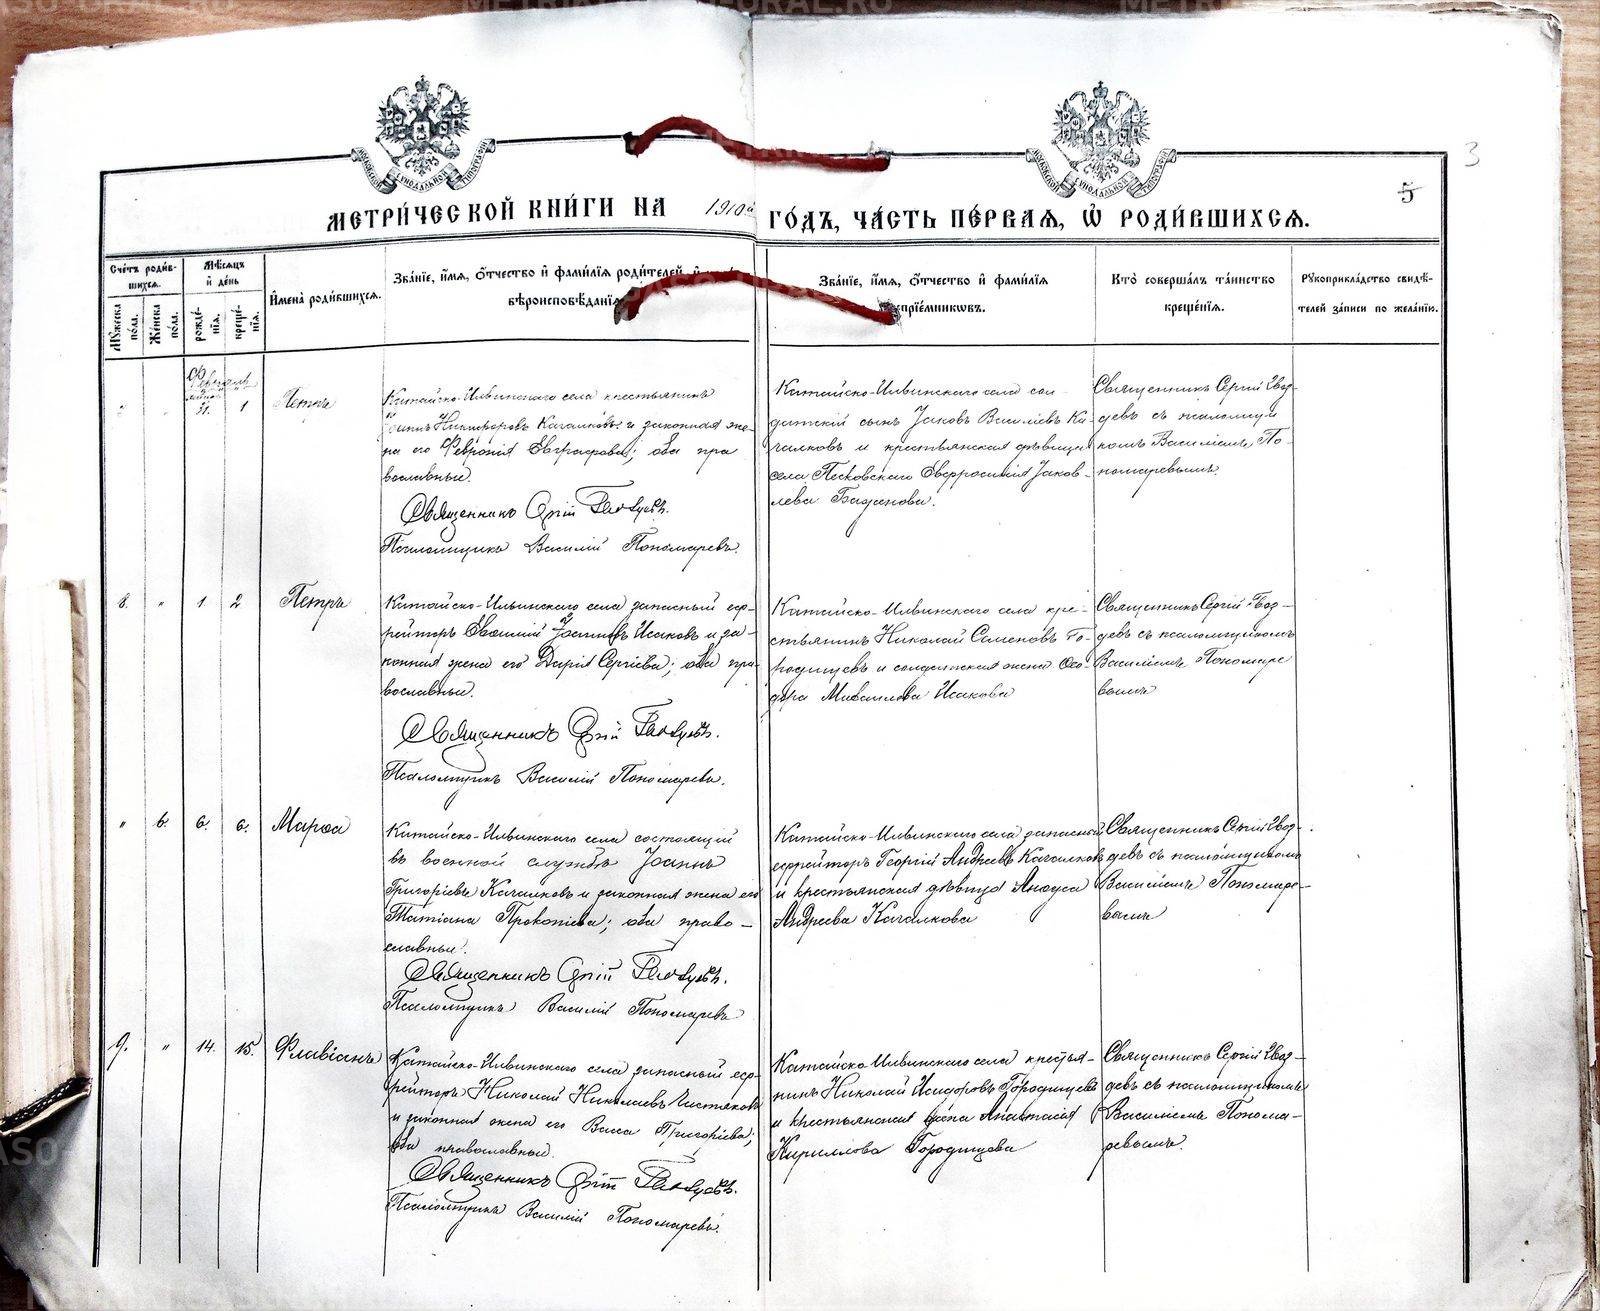 3
5
МЕТРИ́ЧЕСКОЙ КНИ́ГИ НА 1910й ГО́ДЪ, ЧА́СТЬ ПЕ́РВАЯ, Ѡ҆ РОДИ́ВШИХСЯ.
Сче́тъ роди́вшихся.
Му́жеска по́ла.
Же́нска по́ла.
Мѣ́сяцъ и҆ де́нь
рожде́нїя.
креще́нїя.
И҆мена̀ роди́вшихся.
Зва́нїе, и҆́мя, ѻ҆́тчество и҆ фами́лїя роди́телей и҆
вѣроисповѣ́данїя
Зва́нїе, и҆́мя, ѻ҆́тчество и҆ фами́лїя
воспрїе́мниковъ.
Кто̀ соверша́лъ та́инство
креще́нїя.
Рукоприкла́дство свидѣ́-
телей за́писи по жела́нїю.
Февраль
31. 1
Петръ
Китайско-Ильинскаго села крестьянинъ
Іоаннъ Никифоровъ Качалковъ и законная же-
на его Феврония Евграфова; оба пра
вославные.
Священникъ Сергій Гвоздевъ.
Псаломщикъ Василій Пономаревъ.
Китайско-Ильинскаго села сол-
датскій сынъ Іаковъ Василіевъ Ка-
чалковъ и крестьянская дѣвица
села Песковскаго Евфросинія Іаков-
лева Баженова.
Священникъ Сергій Гвоз-
девъ съ псаломщи
комъ Василіемъ По-
номаревымъ.
8. " 1. 2 Петръ
Китайско-Ильинскаго села запасный еф-
рейторъ Евѳимій Іоанновъ Исаковъ и за-
конная жена его Дарія Сергіева; оба пра-
вославные.
Священникъ Сергій Гвоздевъ.
Псаломщикъ Василій Пономаревъ.
Китайско-Ильинскаго села кре-
стьянинъ Николай Семеновъ Го-
родищевъ и солдатская жена Ѳео-
дора Михаилова Исакова
Священникъ Сергій Гвоз-
девъ съ псаломщикомъ
Василіемъ Пономаре
вымъ
" 6. 6. 6. Марѳа
Китайско-Ильинскаго села состоящій
въ военной службѣ Іоаннъ
Григоріевъ Качалковъ и законная жена его
Татіана Прокопіева; оба право-
славные.
Священникъ Сергій Гвоздевъ.
Псаломщикъ Василій Пономаревъ
Китайско-Ильинскаго села запасный
ефрейторъ Георгій Андреевъ Качалковъ
и крестьянская дѣвица Анѳуса
Андреева Качалкова
Священникъ Сергій Гвоз-
девъ съ псаломщикомъ
Василіемъ Пономаре-
вымъ
9. " 14. 15. Флавіанъ
Китайско-Ильинскаго села запасный еф-
рейторъ Николай Николаевъ Чистяковъ
и законная жена его Васса Григоріева;
оба православные.
Священникъ Сергій Гвоздевъ.
Псаломщикъ Василій Пономаревъ.
Китайско-Ильинскаго села крестья-
нинъ Николай Исидоровъ Городищевъ
и крестьянская жена Анастасія
Кириллова Городищева
Священникъ Сергій Гвоз-
девъ съ псаломщикомъ
Василіемъ Понома-
ревымъ.